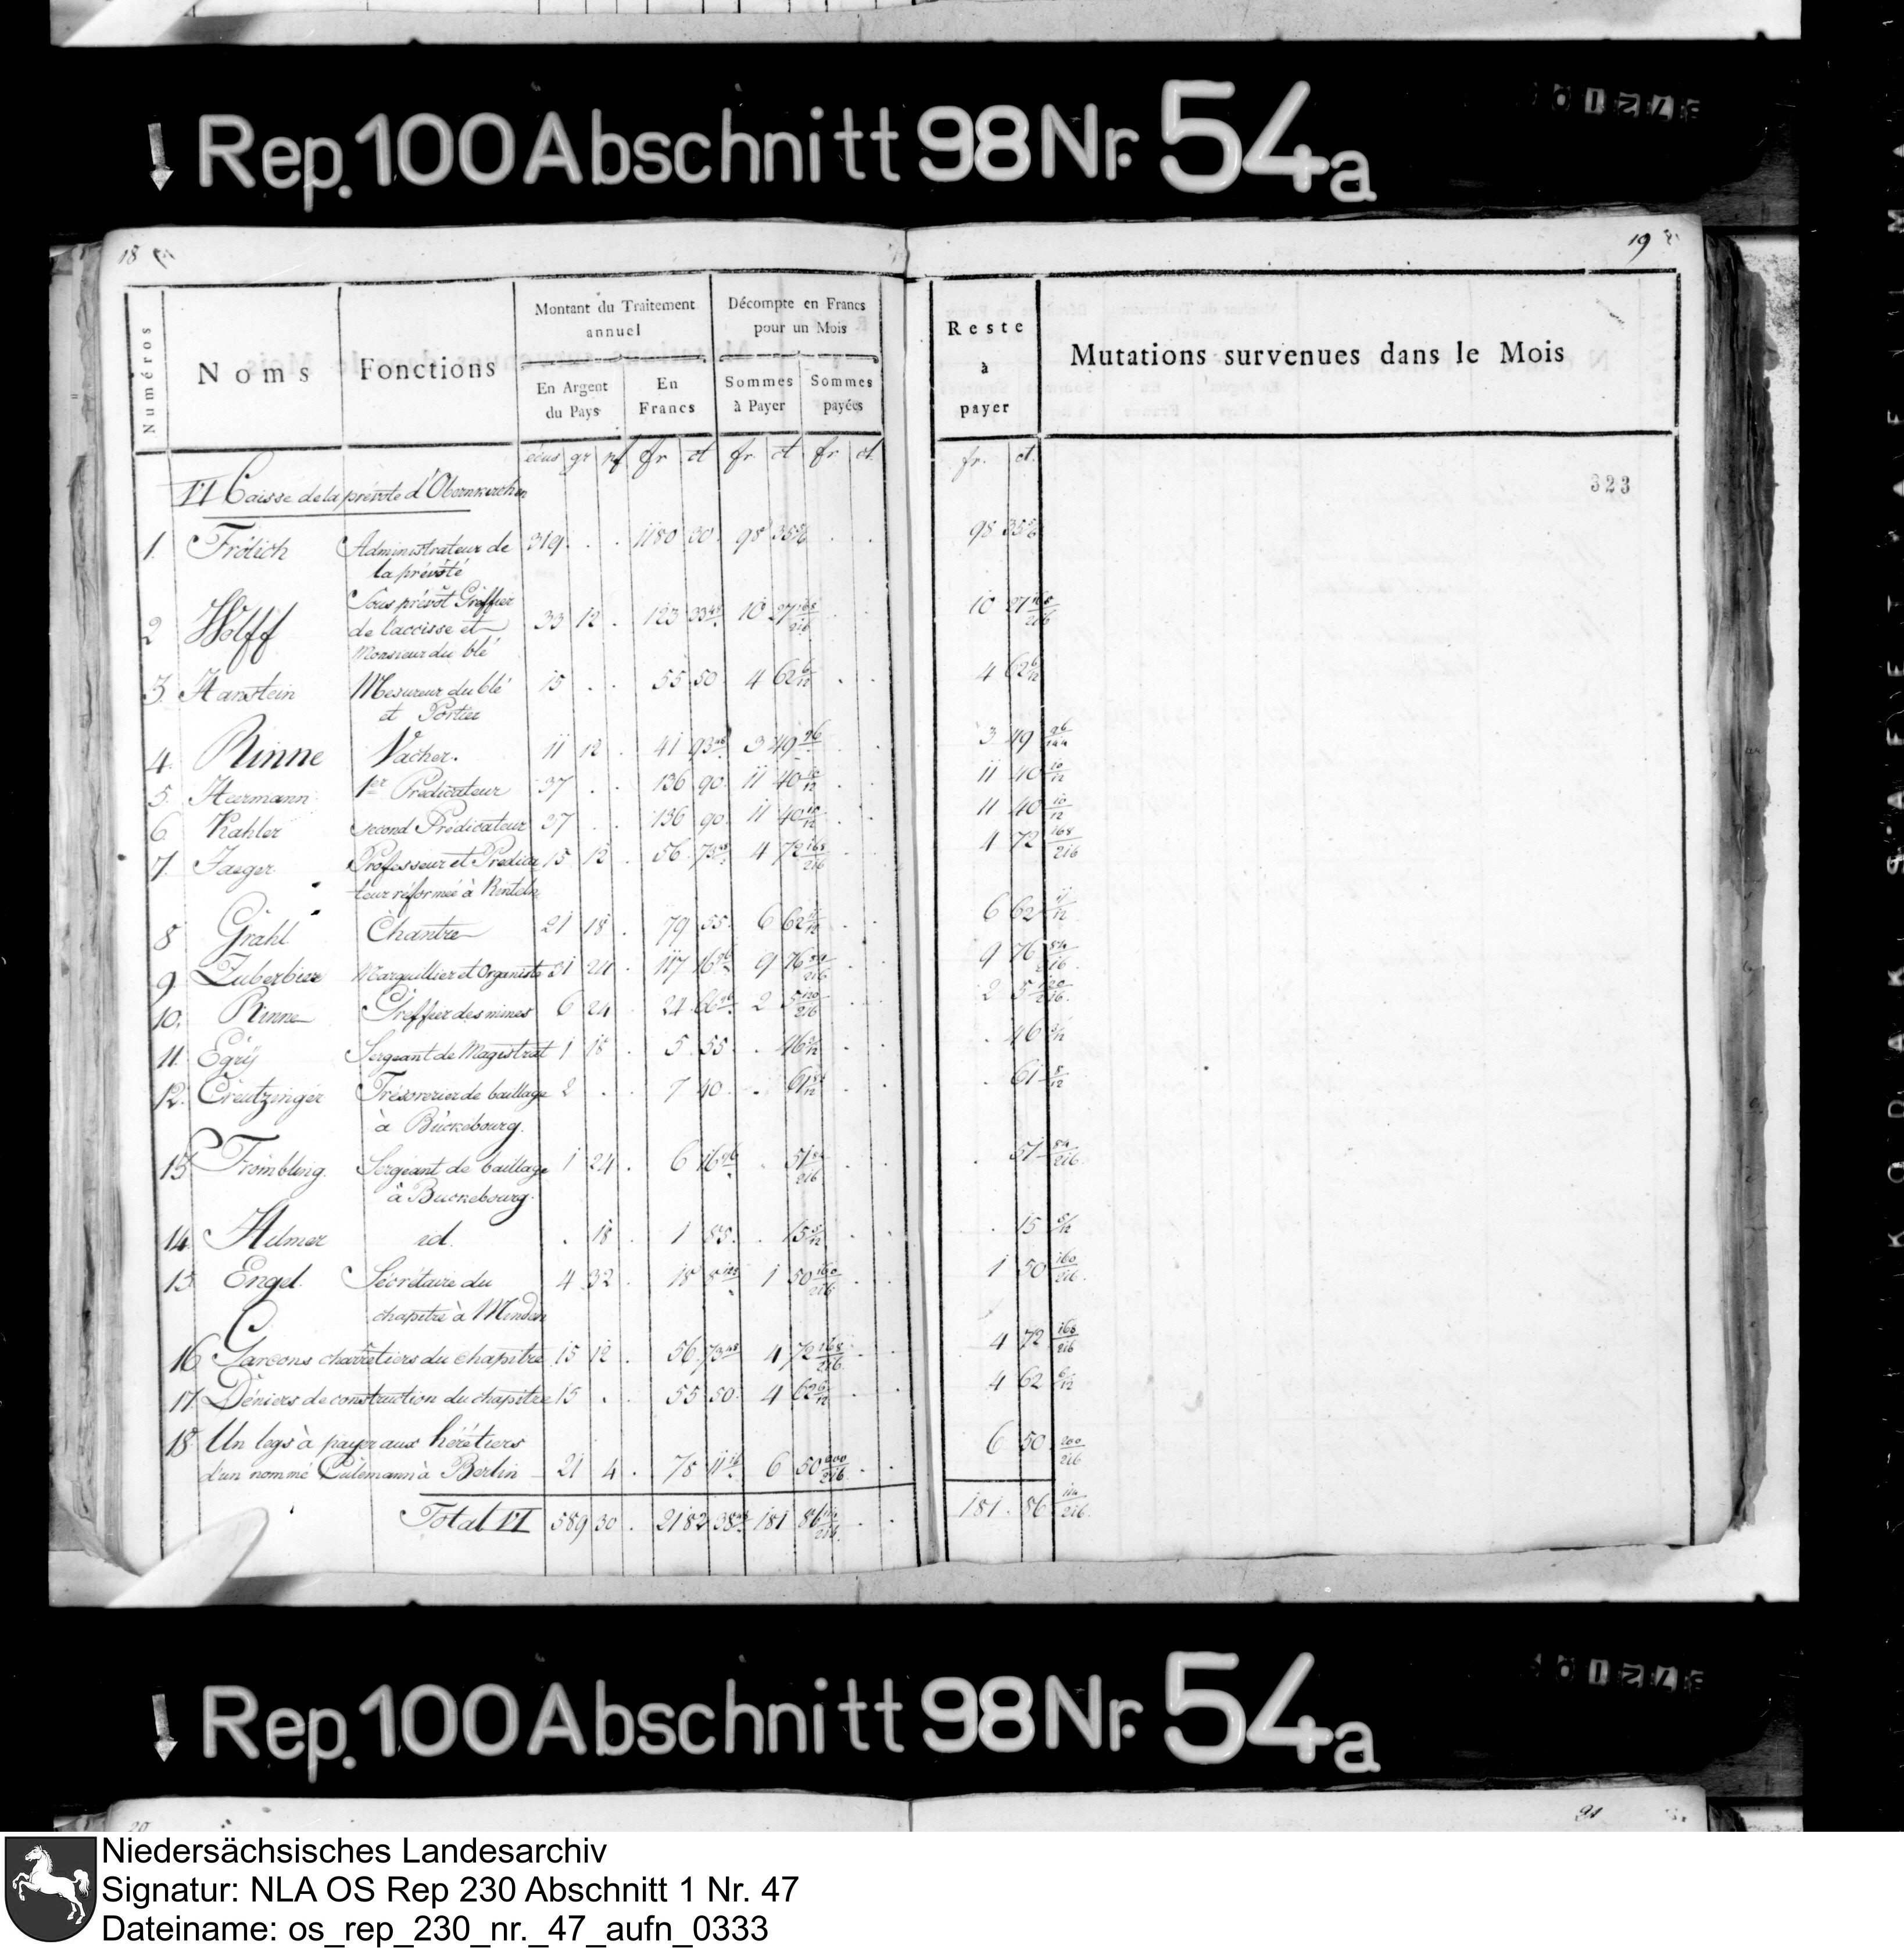 Rep. 100 Abschnitt 98 Nr. 54a
18
19
Numéros
Noms
Fonctions
Montant du Traitement annuel
En Argent du Pays
En Francs
Décompte en Francs pour un Mois
Sommes à Payer
Sommes payées
Reste à payer
Mutations survenues dans le Mois
écus gr pf fr ct fr ct fr ct fr. ct.
323
VI Caisse de la prévote d'Obernkirchen
1. Frölich Administrateur de la prévôté 319 . . 1180 30 98 35 98 35
2 Wolff Sous prévôt Greffier de l'accisse et Monsieur du blé 33 12 . 123 33 10 27 168/216 10 27 168/216
3. Hanstein Mesureur du blé et Portier 15 . . 55 50 4 62 6/12 4 62 6/12
4. Rinne Vacher. 11 12 . 41 93 3 49 3 49 96/144
5. Heermann 1er Prédicateur 37 . . 136 90 11 40 10/12 11 40 10/12
6 Kahler second Prédicateur 37 . . 136 90 11 40 10/12 11 40 10/12
7. Jaeger Professeur et Prédica teur réformeé à Rinteln 15 12 . 56 73 4 72 168/216 4 72 168/216
8 Grahl Chantre 21 18 . 79 55 6 62 11/12 6 62 11/12
9 Zuberbier Marguillier et Organiste 31 24 . 117 16 9 76 84/216 9 76 84/216
10. Rinne Greffier des mines 6 24 . 24 66 2 5 120/216 2 5 120/216
11. Egrÿ Sergeant de Magistrat 1 18 . 5 55 . 46 . 46
12. Creutzinger Trésorerier de baillage à Bückebourg. 2 . . 7 40 . 61 8/12 . 61 8/12
13 Frömbling. Sergéant de baillage à Buckebourg. 1 24 . 6 16 . 51 84/216 . 51 84/216
14. Hilmer id. . 18 . 1 85. . 15 5/12 . 15 5/12
15 Engel. Sécrétaire du chapitre à Minden 4 32 . 18 8 1 50 160/216 1 50 160/216
16 Garcons charretiers du chapitre 15 12 . 56 73 4 72 168/216 4 72 168/216
17. Déniers de construction du chapitre 15 . . 55 50 4 62 6/12 4 62 6/12
18. Un legs à payer aux hérétiers
d'un nommé Cülemann à Berlin 21 4 . 78 11 6 50 200/216 6 50 200/216
Total VI 589 30 . 2182 38 181 86 114/216 181 86 114/216
Rep. 100 Abschnitt 98 Nr. 54a
21
Niedersächsisches Landesarchiv
Signatur: NLA OS Rep 230 Abschnitt 1 Nr. 47
Dateiname: os_rep_230_nr._47_aufn_0333